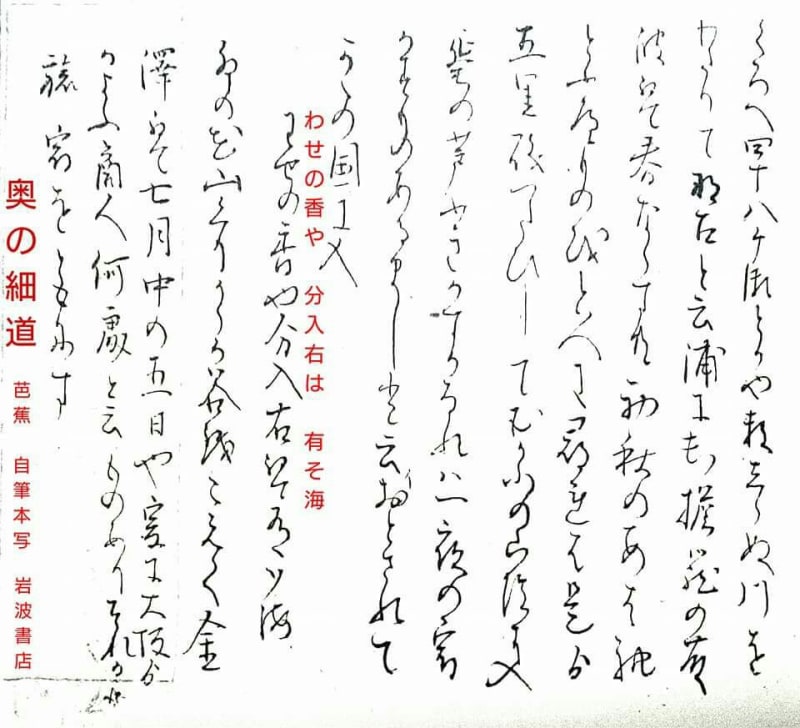 くろへ四十八ケ瀬とかや数しらぬ川を
わたりて那古と云浦に出擔籠の藤
波は春ならすとも初秋のあはれ
とふへきものをと人に尋れは是より
五里磯つたひしてむかふの山陰に入
蜑の苫ふきかすかなれは一夜の宿
かすものあるましと云おとされて
かゝの国に入
わせの香や 分入右は 有そ海
わせの香や分入右は有ソ海
卯の花山くりからか谷をこえて金
澤は七月中の五日や爰に大坂より
かよふ商人何處と云ものありそれか
旅宿をともにす
奥の細道 芭蕉 自筆本写 岩波書店